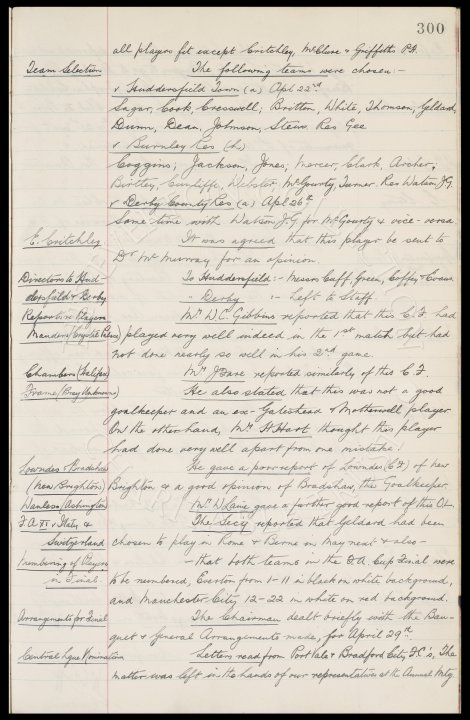 300
all players fit except Critchley, McClure & Griffiths P.H.
Team Selection The following teams were chosen:-
v Huddersfield Town (a) Apl 22nd
Sagar, Cook, Cresswell; Britton, White, Thomson, Geldard,
Dunn, Dean, Johnson, Stein Res Gee
v Burnley Res (h)
Coggins; Jackson, Jones; Mercer, Clark, Archer;
Birtley, Cunliffe, Webster, McGourty, Turner. Res Watson J.G.
v Derby County Res (a) Apl 26th
Same time with Watson J.G for McGourty & vice-versa
E. Critchley It was agreed that this player be sent to
Dr McMurray for an opinion.
Directors to Hud- To Huddersfield:- Messrs Cuff, Green, Coffey & Evans
dersfield & Derby " Derby :- Left to Staff.
Reports re Players Mr W.C. Gibbins reported that this C.F. had
Manders (Crystal Palace) played very well indeed in the 1st match but had
not done nearly so well in his 2nd game.
Chambers (Halifax) Mr J. reported similarly of this C.F.
Frame (Bray Unknowns) He also stated that this was not a good
goalkeeper and an ex-Gateshead & Motherwell player
On the other hand, Mr H Hart thought this player
had done very well apart from one mistake!
Lowndes & Bradshaw He gave a poor report of Lowndes (C.F.) of New
(New Brighton) Brighton & a good opinion of Bradshaw, the Goalkeeper.
Wanless (Ashington) Mr W Lane gave a further good report of this O.L.
F.A. XI v Italy & The Secy reported that Geldard had been
Switzerland chosen to play in Rome & Berne in May next & also -
Numbering of Players - that both teams in the F.A Cup Final were
in Final to be numbered, Everton from 1-11 in black on white background,
and Manchester City 12-22 in white on red background.
Arrangements for Final The Chairman dealt briefly with the Ban-
quet & General Arrangements made, for April 29th.
Central Lgue Nomination Letters read from Port Vale & Bradford City F.C's. The
matter was left in the hands of our representatives at the Annual Mtg.